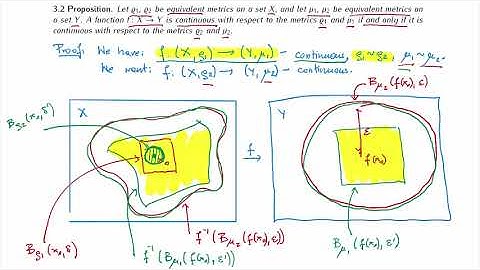 3.2 Proposition. Let ϱ₁, ϱ₂ be equivalent metrics on a set X, and let μ₁, μ₂ be equivalent metrics on
a set Y. A function f: X → Y is continuous with respect to the metrics ϱ₁ and μ₁ if and only if it is
continuous with respect to the metrics ϱ₂ and μ₂.
Proof: We have: f: (X, ϱ₁) → (Y, μ₁) - continuous, ϱ₁ ~ ϱ₂, μ₁ ~ μ₂.
We want: f: (X, ϱ₂) → (Y, μ₂) - continuous.
B_μ₂(f(x₀), ε)
B_ϱ₂(x₀, δ')
X
Y
ε
f
f(x₀)
B_ϱ₁(x₀, δ)
f⁻¹(B_μ₂(f(x₀), ε))
f⁻¹(B_μ₁(f(x₀), ε'))
B_μ₁(f(x₀), ε')